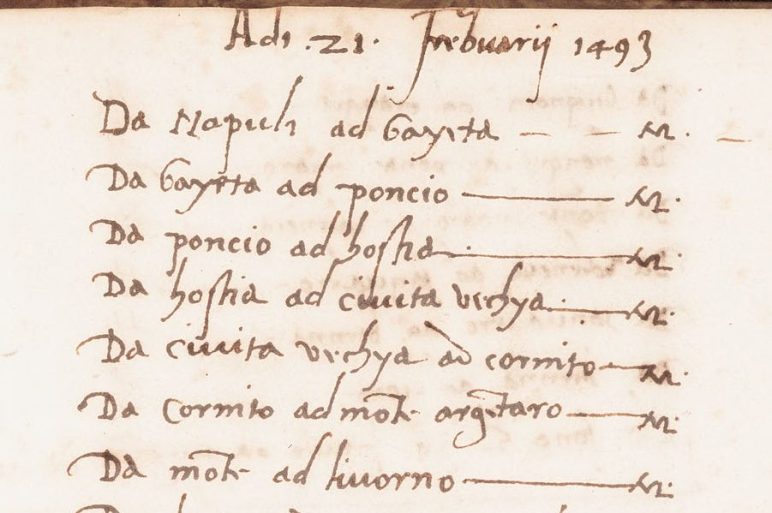 Adi .21. Frebuarij 1493
Da Napuli ad Gayeta — — M. —
Da Gayeta ad poncio — M.
Da poncio ad hostia — M.
Da hostia ad ciuita vechya. — M.
Da ciuita vechya ad cornito — M.
Da Cornito ad mōte argētaro — M.
Da mōte ad liuorno — M.